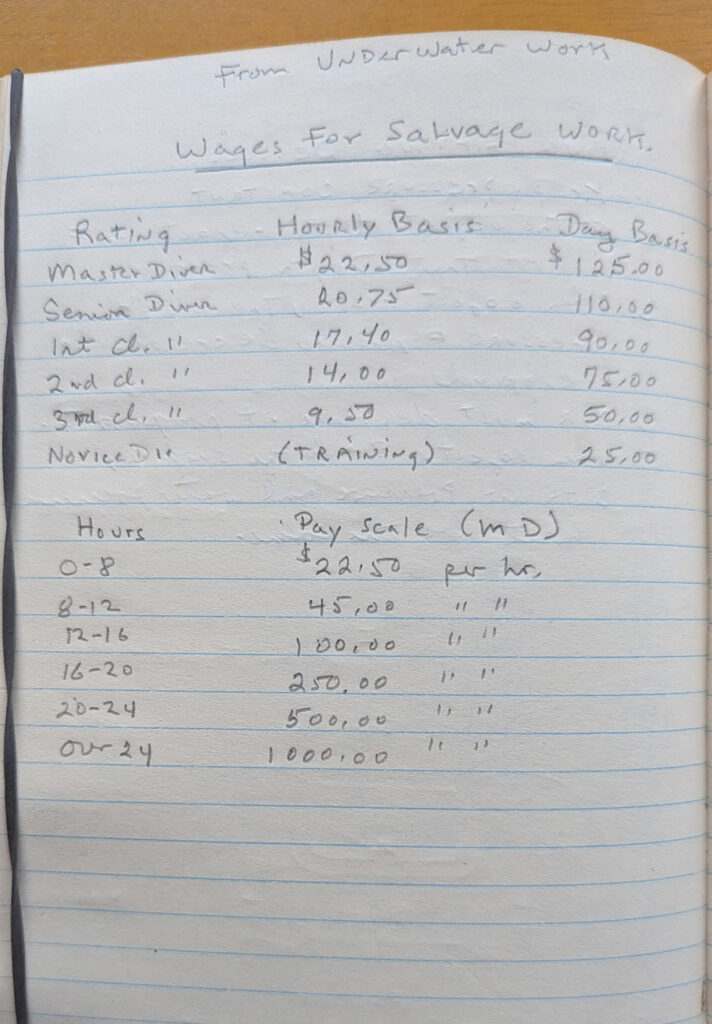 From UNDerWater Work
Wages For Salvage Work.
Rating Hourly Basis Day Basis
Master Diver $22.50 $125.00
Senior Diver 20.75 110.00
1st cl. " 17.40 90.00
2nd cl. " 14.00 75.00
3rd cl. " 9.50 50.00
Novice (TRAining) 25.00
Hours Pay scale (M D)
0-8 $22.50 per hr.
8-12 45.00 " "
12-16 100.00 " "
16-20 250.00 " "
20-24 500.00 " "
Over 24 1000.00 " "